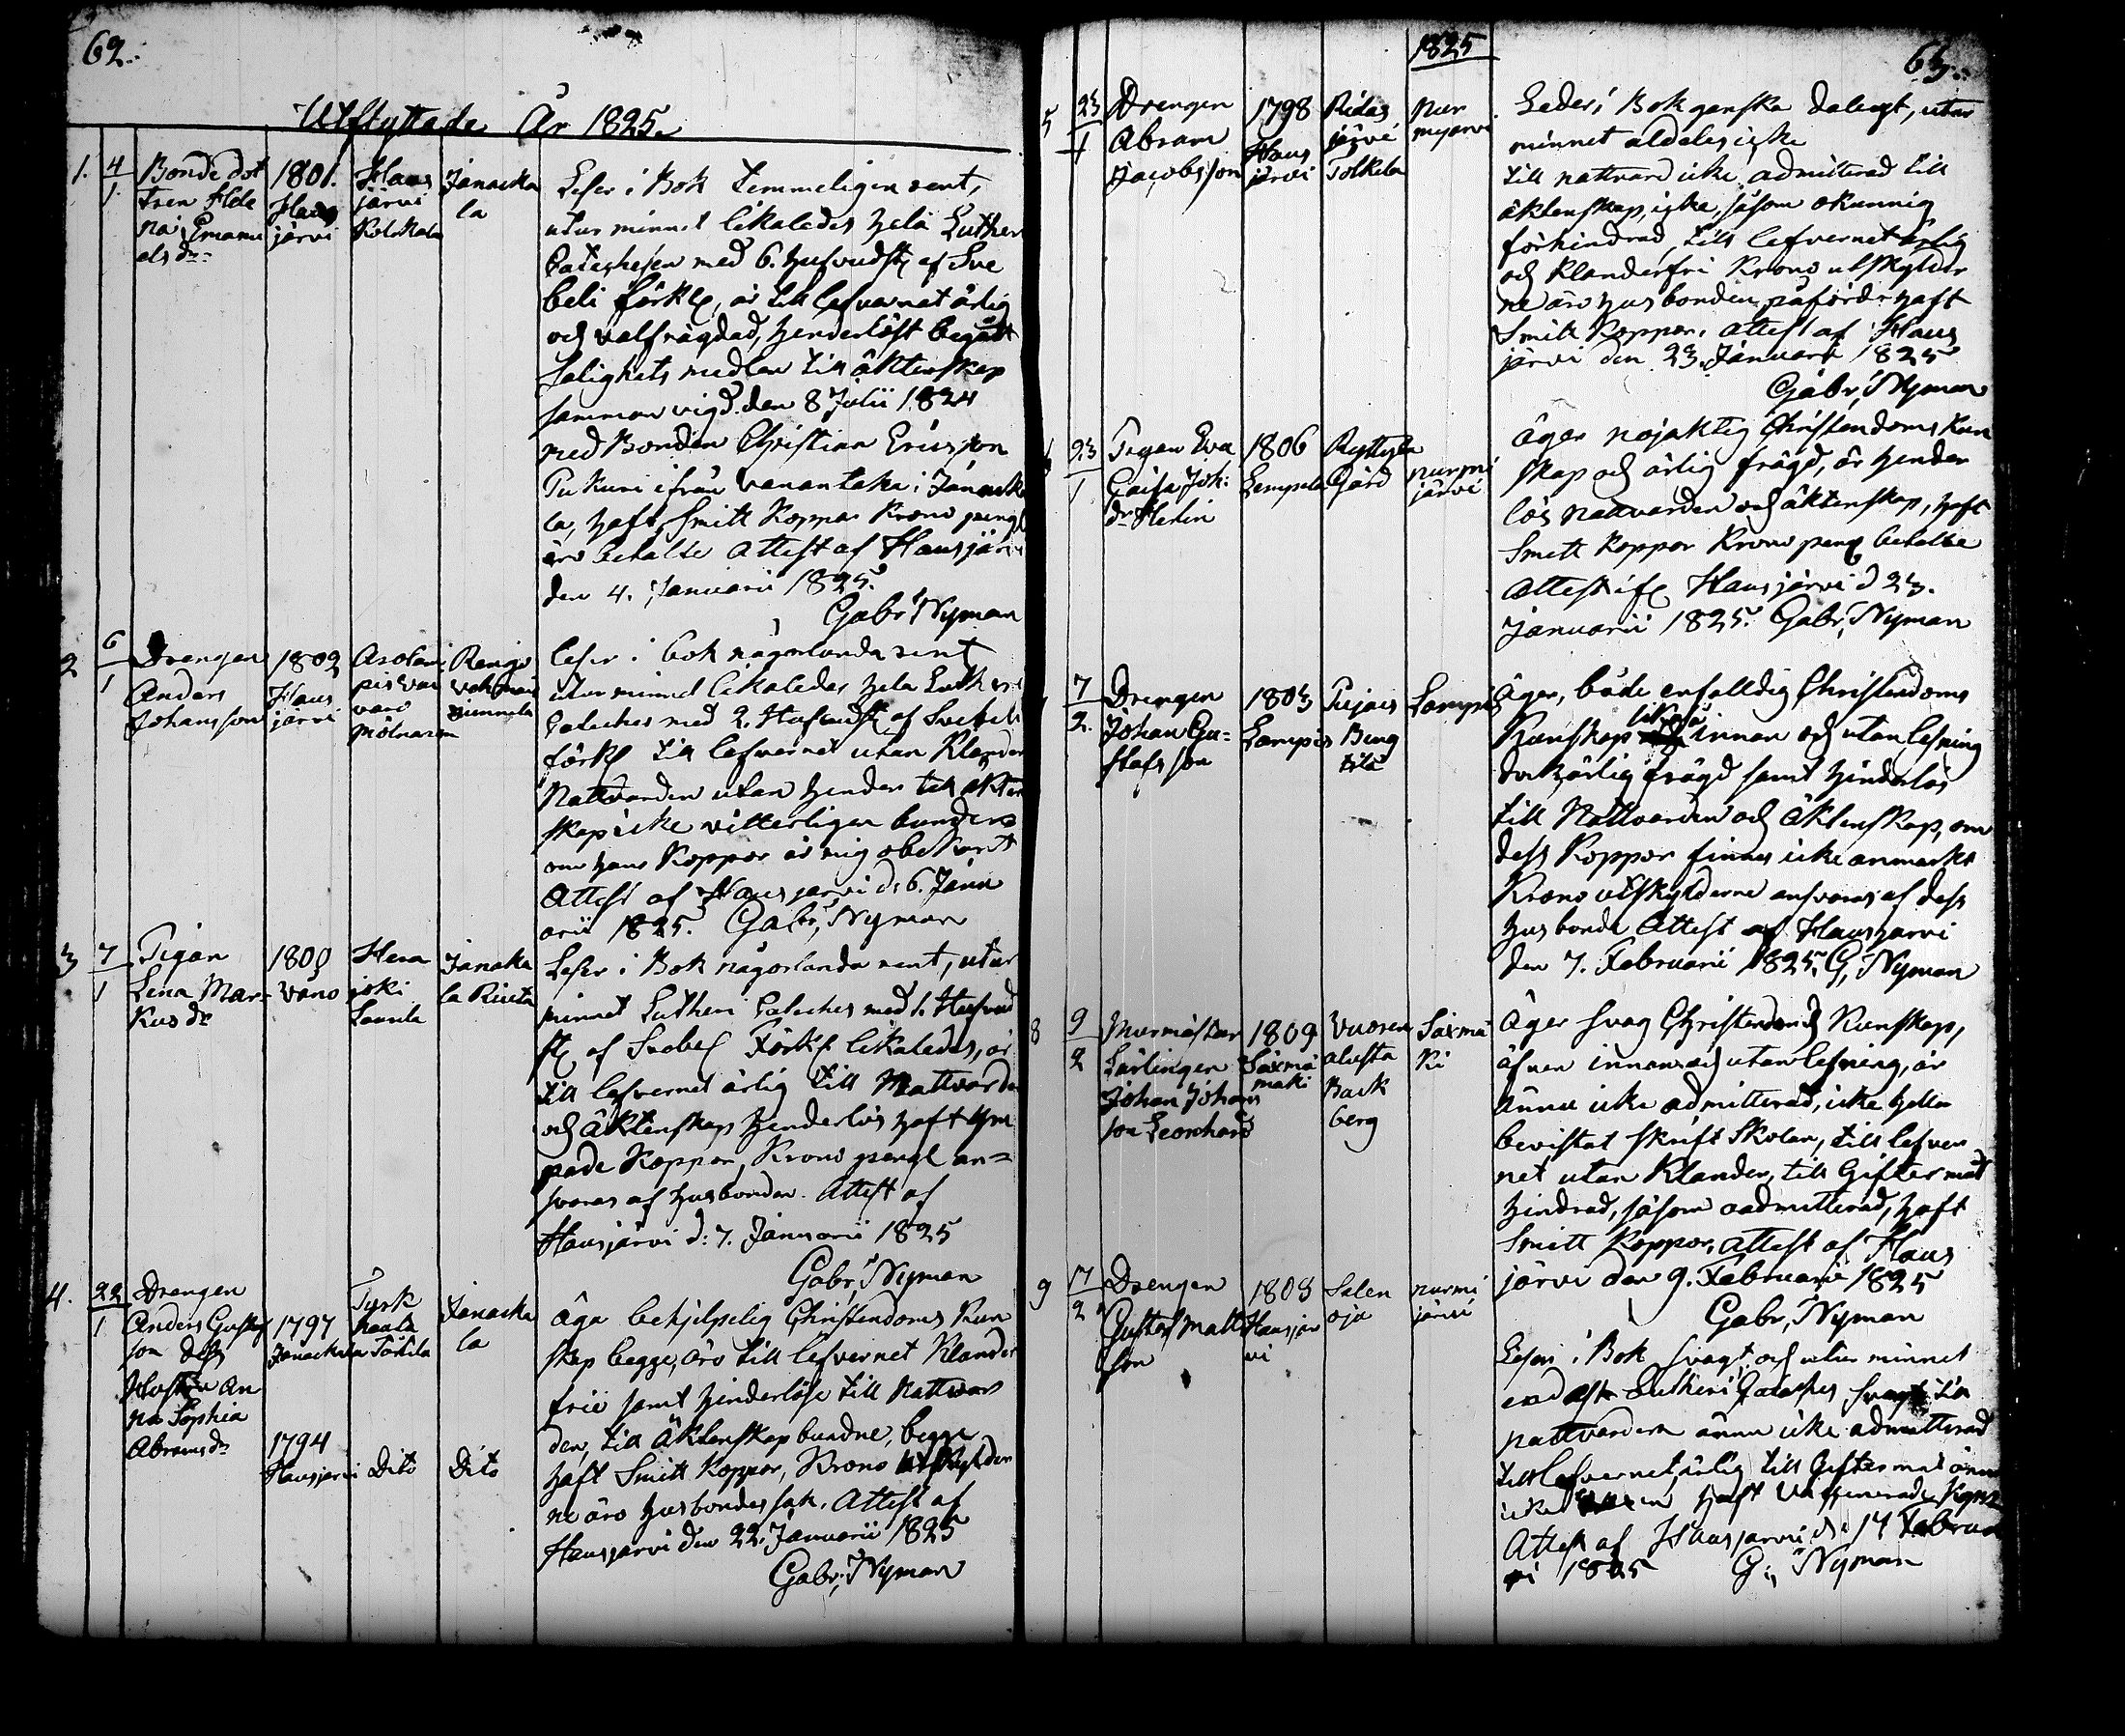 62.
Utflyttade År 1825.
1. 4/1. Bonde dot
tren Hele
na Emanu
elsdr
1801.
Haus
järvi
Haus
järvi
Janacka
la
Leser i Bok temmeligen rent,
utur minnet likaledes hela Lutheri
Cateshesen med 6. hufvudst af Sve
beli förkl, är till lefvernet ärlig
och välfrägdad, henderlöst begått
Salighets medlen till äktenskap
samman vigd den 8 Julii 1824
med Bonden Christian Ericsson
Tu kuri ifrån Vanantaka i Janacka
la, haft Smitt Koppor Krono pengl
äro betalte Attest af Hausjärvi
den 4. Januarii 1825.
Gabr, Nyman
2 6/1 Drengen
Anders
Johansson
1802
Haus
järvi
Mölnaren
Renjo
leser i bok någorlunda rent
utur minnet likaledes hela Lutheri
Cateches med 2. Hufvudst af Svebeli
förkl till lefvernet utan Klander
Nattvarden utan hender till äkten
skap icke vitterligen bunden
om hans Koppor är mig obekant
Attest af Hausjarvi d. 6. Janu
arii 1825. Gabr, Nyman
3 7/1 Pigan
Lena Mar-
kusdr
1809
Våno
Hera
joki
Laurila
Janaka
la
Leser i Bok någorlunda rent, utur
minnet Lutheri Cateches med 1. Hufvud
st af Svebel Förkl likaledes, är
till lefvernet ärlig till Nattvarden
och äktenskap henderlös haft ym
pade Koppor, Krono pengl an=
svaras af husbonden. Attest af
Hausjärvi d: 7. Januarii 1825
Gabr, Nyman
4. 22/1 Drengen
Anders Gustaf
son dess
Hustru An
na Sophia
Abramsdr
1797
Janackala
1794
Hausjarvi
Turk
hauta
Dito
Janacka
la
Dito
Äga behjelpelig Christendoms Kun
skap begge, äro till lefvernet Klander
frie samt hinderlöse till Nattvar
den, till Äktenskap bundne, begge
haft Smitt Koppor, Krono utskylder
ne äro husbondes sak. Attest af
Hausjarvi den 22. Januarii 1825
Gabr, Nyman
1825
63.
5 23/1 Drengen
Abram
Jacobsson
1798
Haus
järvi
Ridas
järvi
Tolkela
Nur
mijarvi
Leder i Bok ganska dalegt, utur
minnet aldeles icke
till nattvard icke admitterad till
äktenskap, icke, såsom okunnig
förhindrad, till lefvernet ärlig
och Klanderfri Krono utskylder
ne äro husbonden påförde haft
Smitt Koppor. attest af Haus
järvi den 23. Januarii 1825
Gabr, Nyman
23/1 Pigan Eva
Caisa Joh:
dr Helin
1806
Lempela
Ryttyle
Gård
Nurmi
järvi
Äger nojaktig Christendoms kun
skap och ärlig frägd, är hender
lös nattvarden och äktenskap, haft
Smitt Koppor Krono peng betalte
Attest if Hausjärvi d 23.
Januarii 1825. Gabr, Nyman
7/2. Drengen
Johan Gu=
stafsson
1803
Lampis
Pujais
Lampis
Äger, både enfalldig Christendoms
Kunskap likaså innan och utan lesning
dock ärlig frägd samt hinderlös
till Nattvarden och Äktenskap, om
dess Koppor finnes icke anmarkt
Krono utskylderne ansvaras af dess
husbonde Attest af Hausjarvi
den 7. Februarii 1825, G, Nyman
8 9/2 Murmästar
Lärlingen
Johan Johans
son Leonhard
1809
Säxmä
mäki
Vuoren
alusta
Back
berg
Säxmä
ki
Äger svag Christendoms Kunskap,
äfven innan och utan lesning, är
ännu icke admitterad, icke heller
bevistat skrift Skolan, till lefver
net utan Klander, till Giftermål
hindrad, såsom oadmitterad, haft
Smitt Koppor, attest af Haus
järvi den 9. Februarii 1825
Gabr, Nyman
9 17/2 Drengen
Gustaf Matts
son
1808
Hausjär
vi
Salen
oja
nurmi
järvi
Leser i Bok svagt och utur minnet
endast Lutheri Cateches svagt till
nattvarden ännu icke admitterad
till lefvernet ärlig till Giftermål ännu
icke haft Vaccinerade Kopp
Attest af Hausjarvi d: 17 Februa
ri 1825 G, Nyman